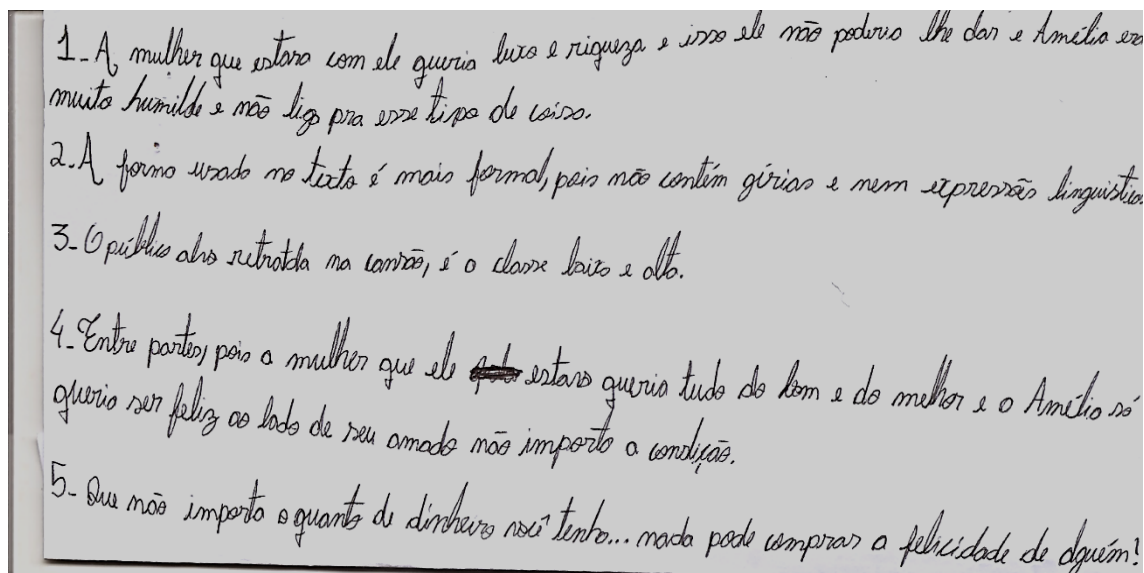 1- A mulher que estava com ele queria luxo e riqueza e isso ele não poderia lhe dar e Amélia era
muito humilde e não liga pra esse tipo de coisa.
2. A forma usada no texto é mais formal, pois não contém gírias e nem expressão linguistica
3- O público alvo retratda na canção, é a classe baixa e alta.
4- Entre partes, pois a mulher que ele estava queria tudo do bom e do melhor e a Amélia só
queria ser feliz ao lado de seu amado não importa a condição.
5- Que não importa o quanto de dinheiro você tenha... nada pode comprar a felicidade de alguém!